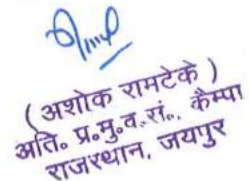 ( अशोक रामटेके )
अति॰ प्र॰मु॰व॰सं॰, कैम्पा
राजस्थान, जयपुर